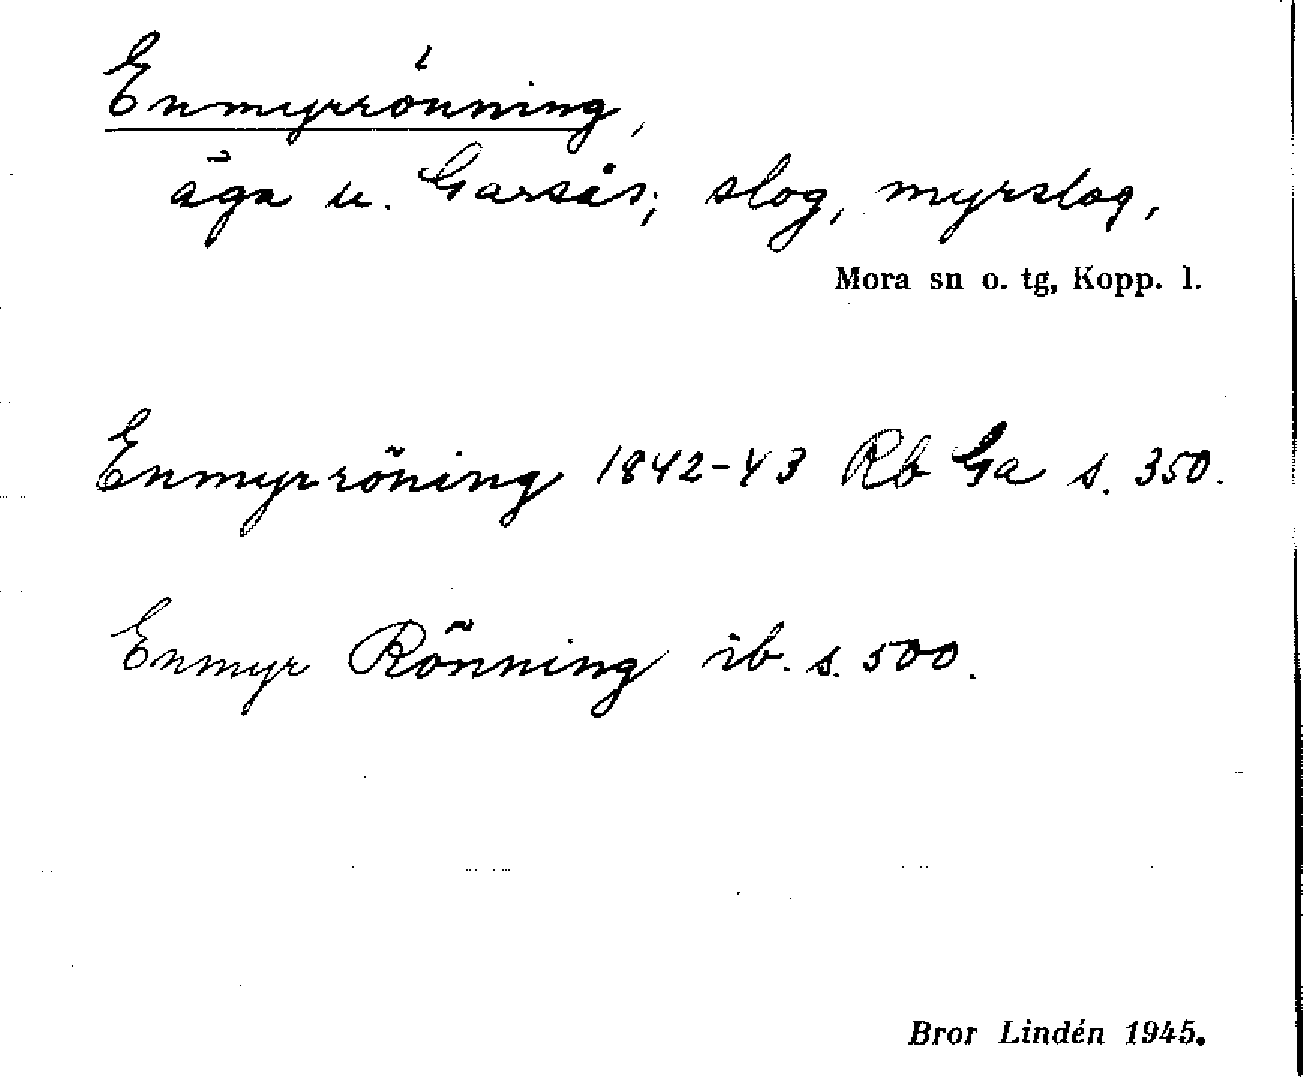 Enmyrrönning,
äga u. Garsås; slog, myrslog,
Mora sn o. tg, Kopp. l.
Enmyrröning 1842-43 Rb Ga s. 350.
Enmyr Rönning ib. s. 500.
Bror Lindén 1945.